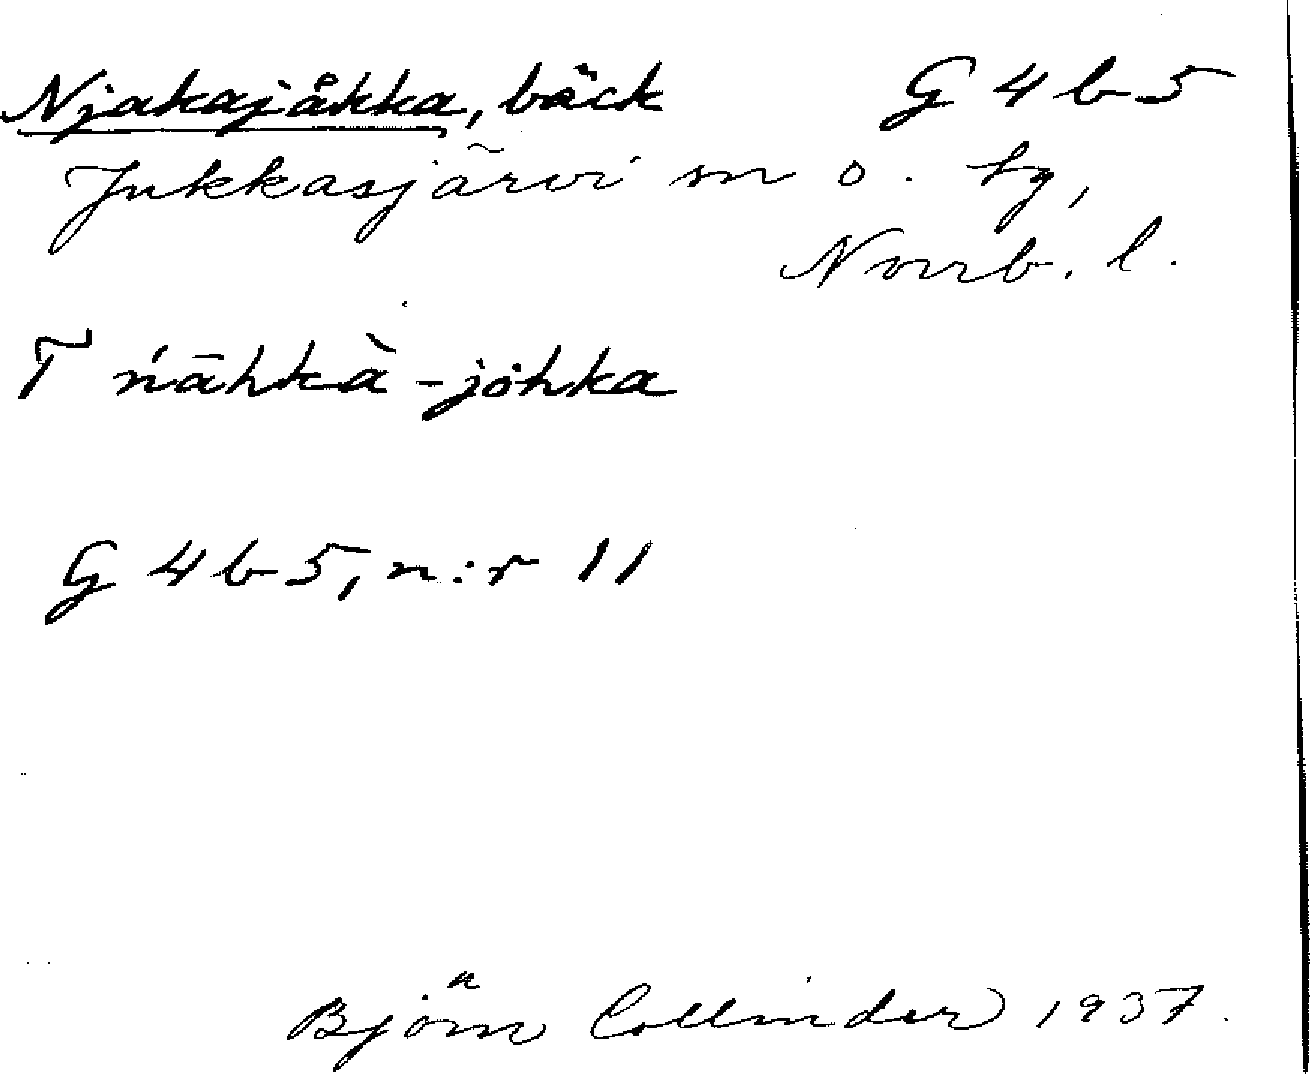 Njakajåkka, bäck G 4 b 5
Jukkasjärvi sn o. tg,
Norrb. l.
T ńāhkà-jȯhka
G 4 b 5, n:r 11
Björn Collinder 1937.